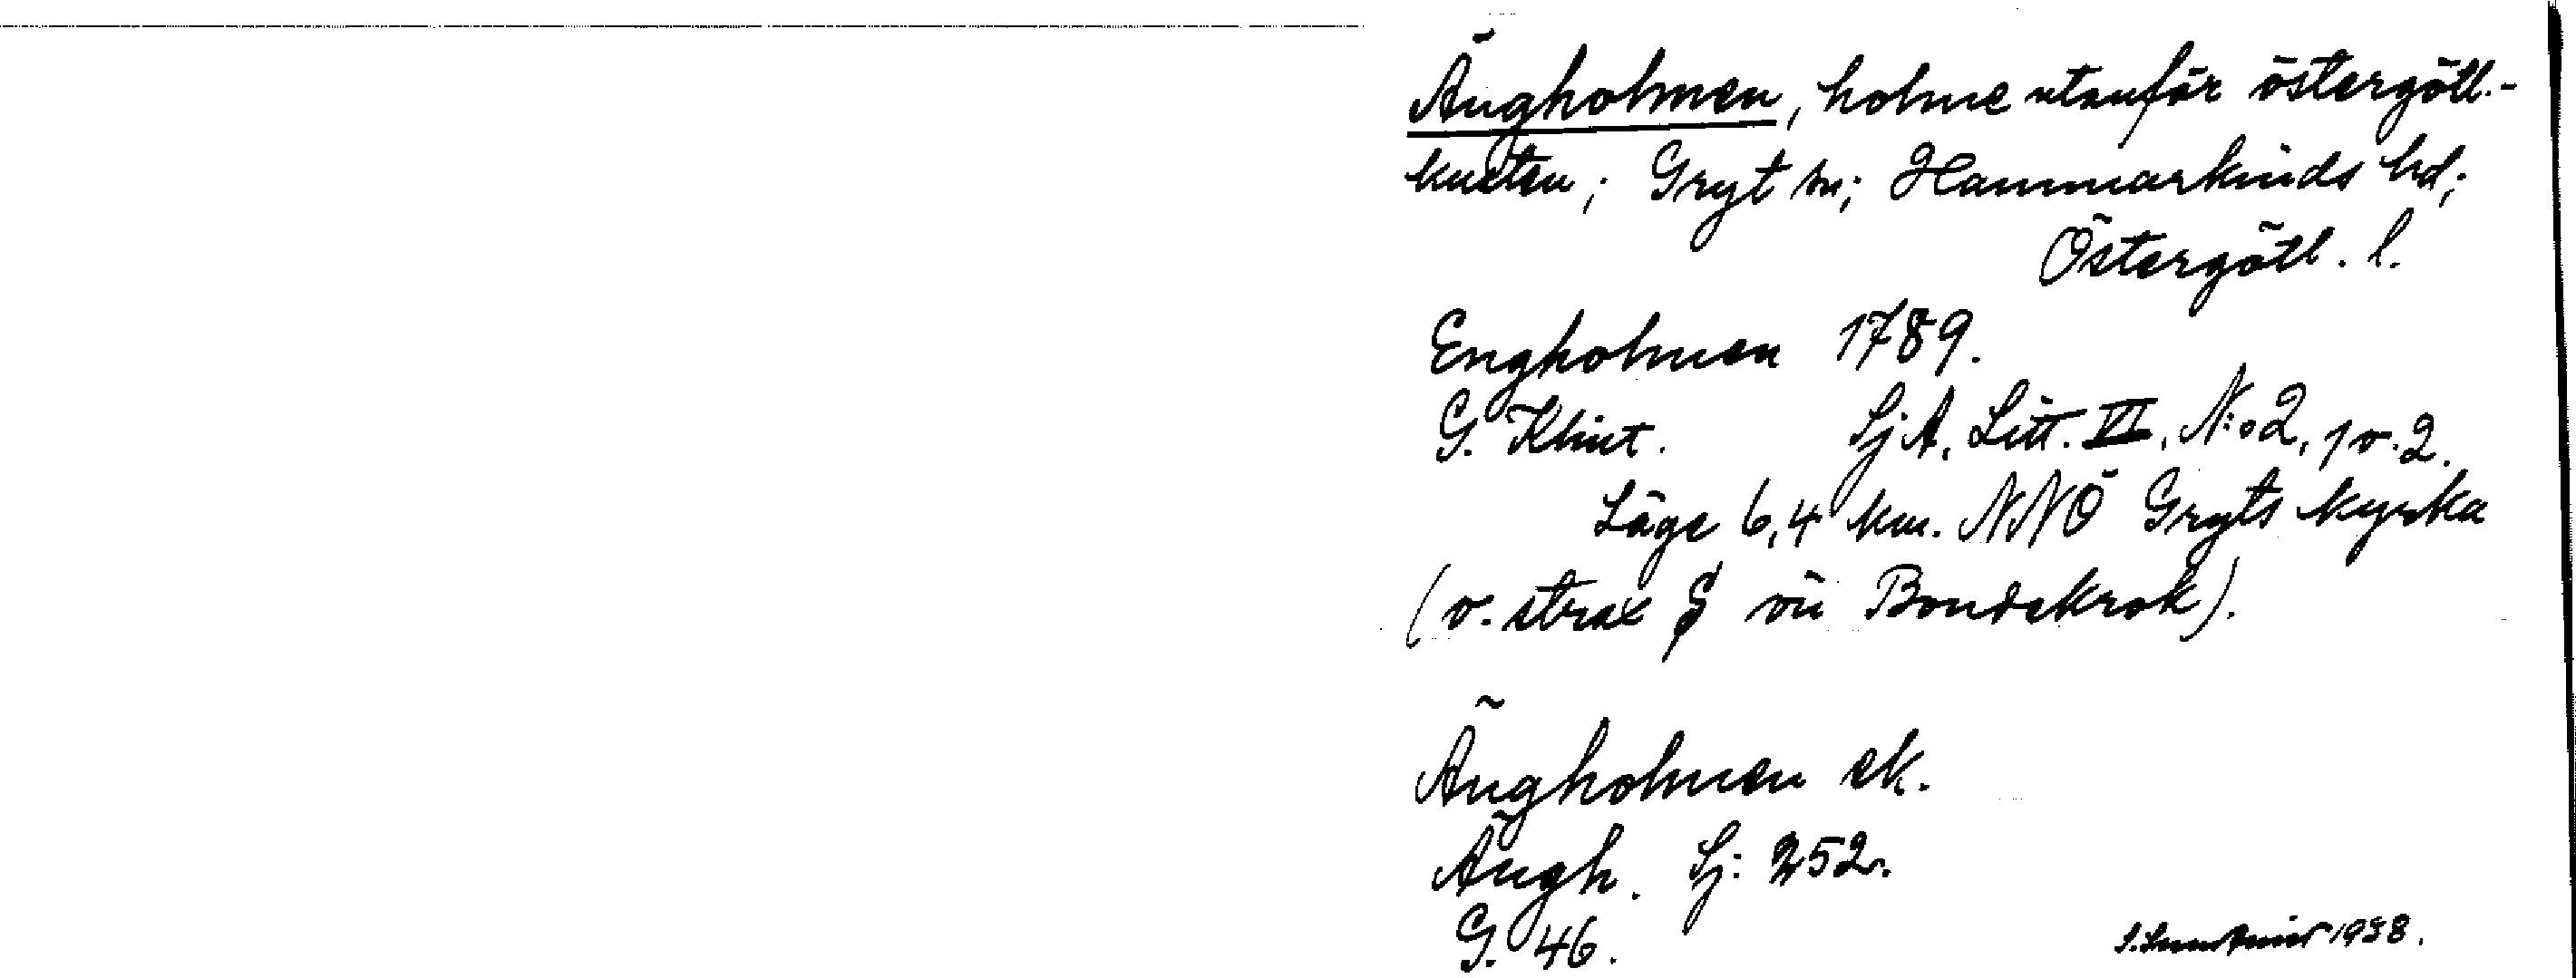 Ängholmen, holme utanför östergötl.-
kusten; Gryt sn; Hammarkinds hd;
Östergötl. l.
Engholmen 1789.
G. Klint. Sj A, Litt. VI, N:o 2, 1 v. 2.
Läge 6,4 km. NNÖ Gryts kyrka
(v. strax S om Bondekrok).
Ängholmen ek.
Ängh. Sj: 252.
G. 46.
1938.